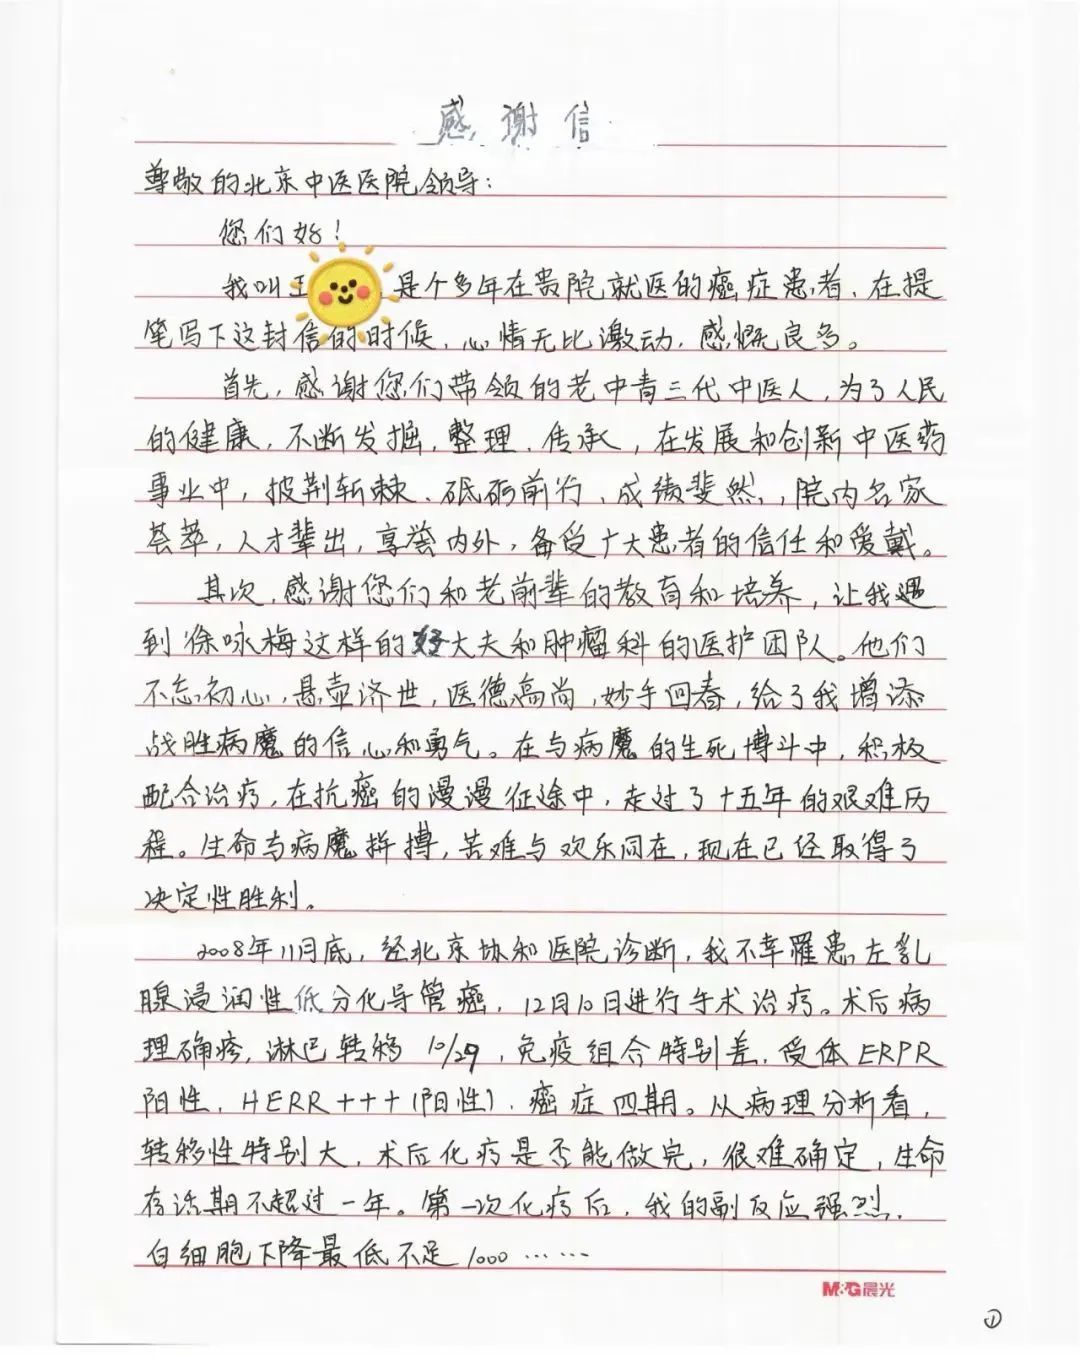 感谢信
尊敬的北京中医医院领导：
您们好！
我叫王 ，是个多年在贵院就医的癌症患者、在提
笔写下这封信的时候，心情无比激动，感慨良多。
首先，感谢您们带领的老中青三代中医人，为了人民
的健康，不断发掘，整理、传承，在发展和创新中医药
事业中，披荆斩棘、砥砺前行、成绩斐然，院内名家
荟萃，人才辈出，享誉内外，备受广大患者的信任和爱戴。
其次，感谢您们和老前辈的教育和培养，让我遇
到徐咏梅这样的好大夫和肿瘤科的医护团队。他们
不忘初心，悬壶济世，医德高尚，妙手回春，给了我增添
战胜病魔的信心和勇气。在与病魔的生死博斗中，积极
配合治疗，在抗癌的漫漫征途中，走过了十五年的艰难历
程。生命与病魔拼搏，苦难与欢乐同在，现在已经取得了
决定性胜利。
2008年11月底，经北京协和医院诊断，我不幸罹患左乳
腺浸润性低分化导管癌，12月10日进行手术治疗。术后病
理确疹，淋巴转移10/29，免疫组合特别差，受体ERPR
阳性，HERR+++(阳性)，癌症四期。从病理分析看，
转移性特别大，术后化疗是否能做完，很难确定，生命
存活期不超过一年。第一次化疗后，我的副反应强烈，
白细胞下降最低不足1000……
M&G晨光
①